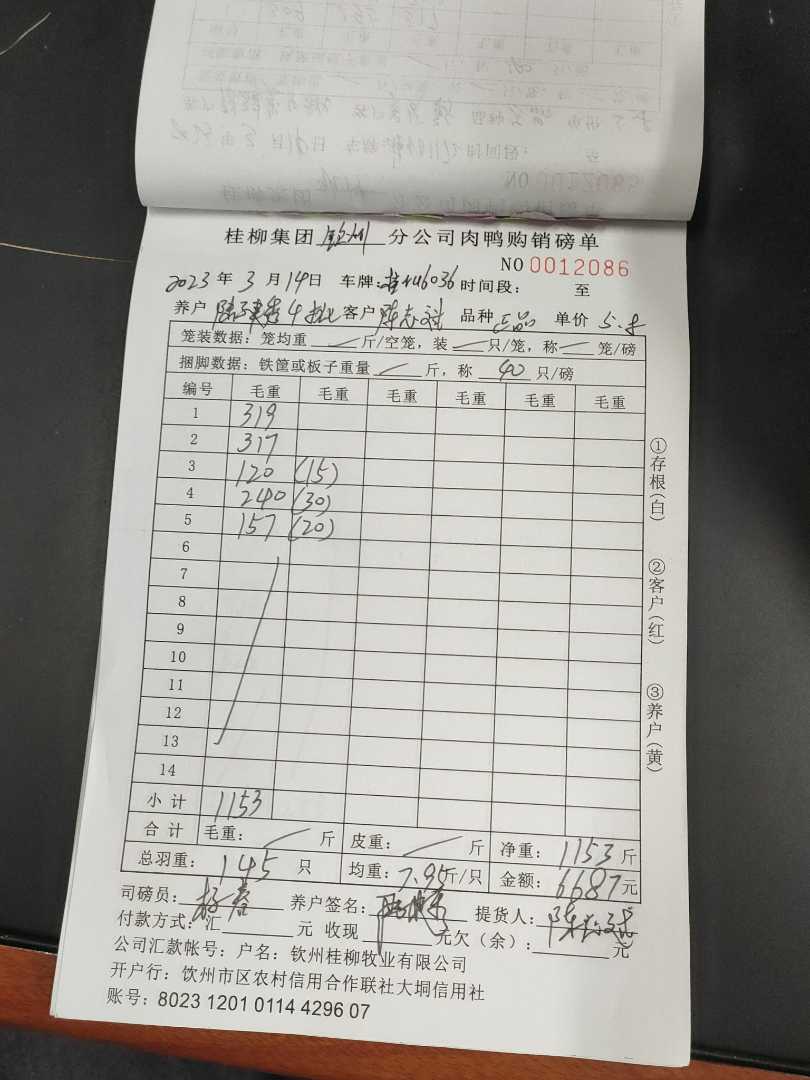 桂柳集团 钦州 分公司肉鸭购销磅单
NO 0012086
2023 年 3 月 14 日 车牌: 6036 时间段: 至
养户 4批 客户 陈志 品种 正品 单价 5.8
笼装数据: 笼均重 斤/空笼, 装 只/笼, 称 笼/磅
捆脚数据: 铁筐或板子重量 斤, 称 40 只/磅
编号 毛重 毛重 毛重 毛重 毛重 毛重
1 319
2 317
3 120 (15)
4 240 (30)
5 157 (20)
6
7
8
9
10
11
12
13
14
小计 1153
合计 毛重: 斤 皮重: 斤 净重: 1153 斤
总羽重: 145 只 均重: 7.95 斤/只 金额: 6687 元
司磅员: 养户签名: 提货人:
付款方式: 汇 元 收现 元欠 (余): 元
公司汇款帐号: 户名: 钦州桂柳牧业有限公司
开户行: 钦州市区农村信用合作联社大垌信用社
账号: 8023 1201 0114 4296 07
①存根(白)
②客户(红)
③养户(黄)